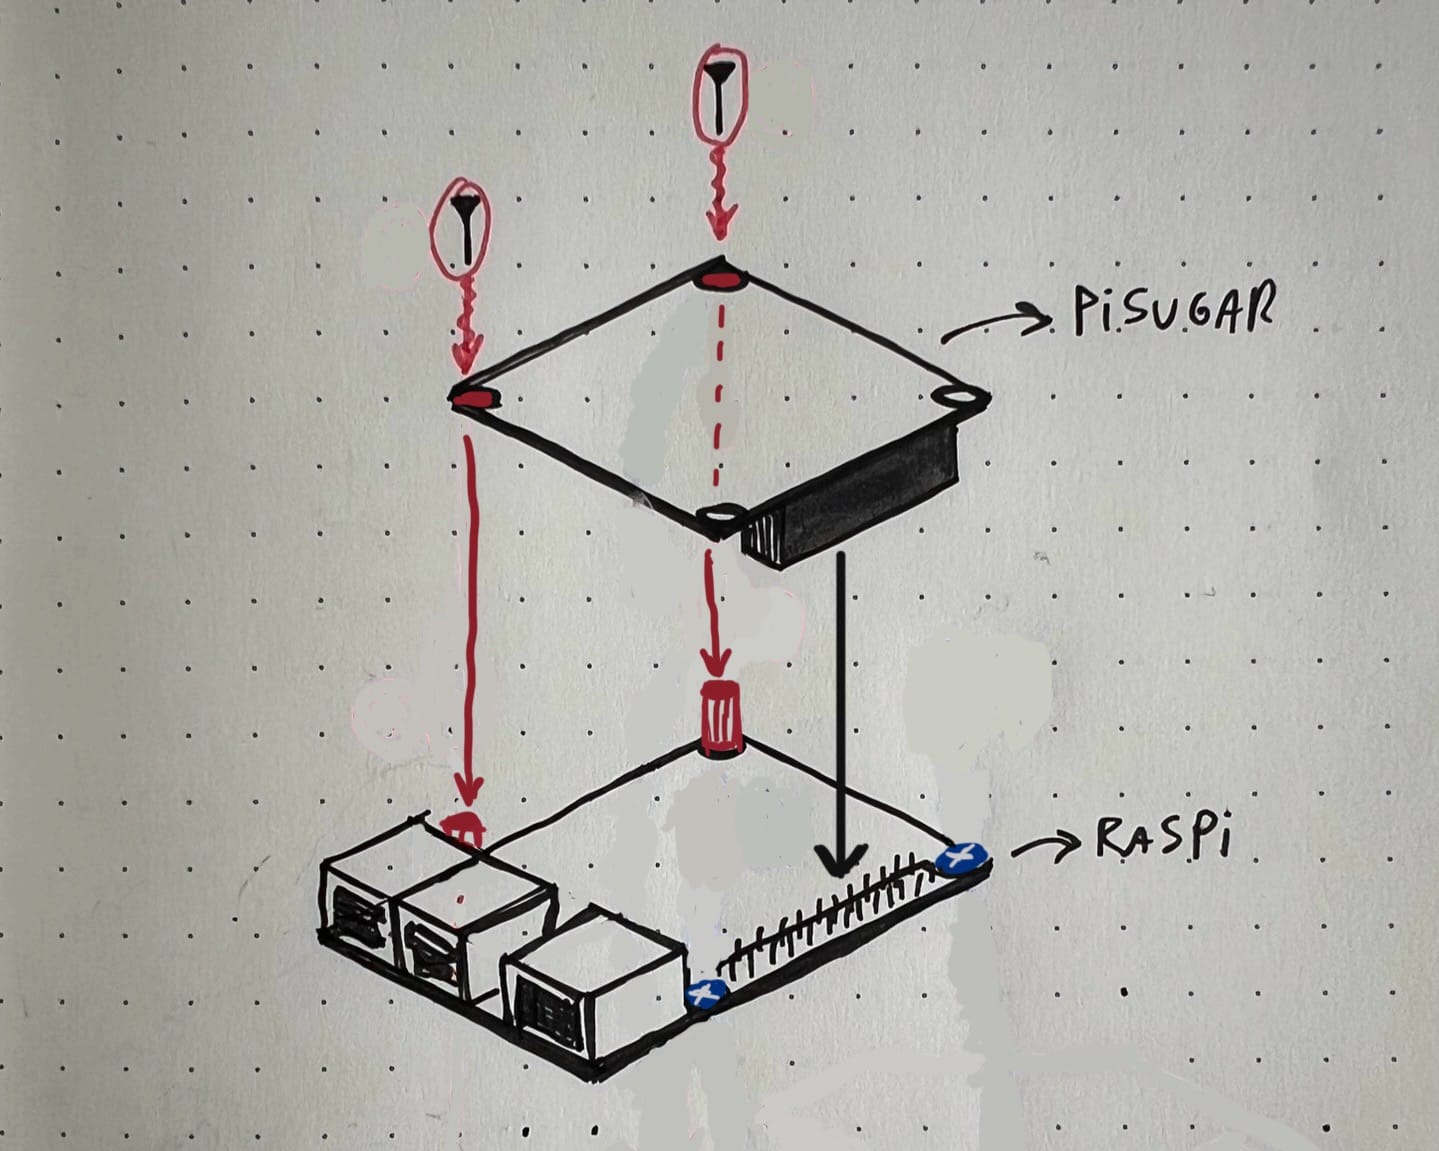 PiSUGAR
RASPi